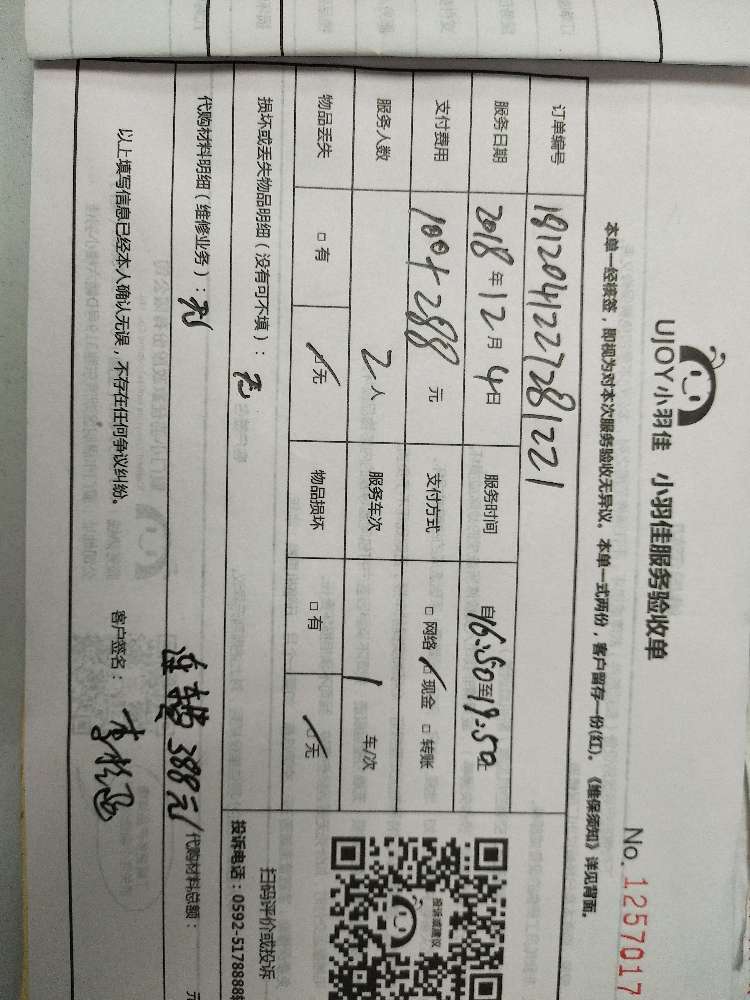 UJOY小羽佳 小羽佳服务验收单
No. 1257017
本单一经核签，即视为对本次服务验收无异议。本单一式两份，客户留存一份(红)。《维保须知》详见背面。
订单编号 1812041227281221
服务日期 2018年12月4日 服务时间 自16:50至19:50止
支付费用 100+288元 支付方式 □网络 ☑现金 □转账
服务人数 2人 服务车次 1车/次
物品丢失 □有 ☑无 物品损坏 □有 ☑无
损坏或丢失物品明细（没有可不填）：无
投诉建议
扫码评价或投诉
投诉电话：0592-5178888
代购材料明细（维修业务）：无 388元/代购材料总额： 元
以上填写信息已经本人确认无误，不存在任何争议纠纷。 客户签名：